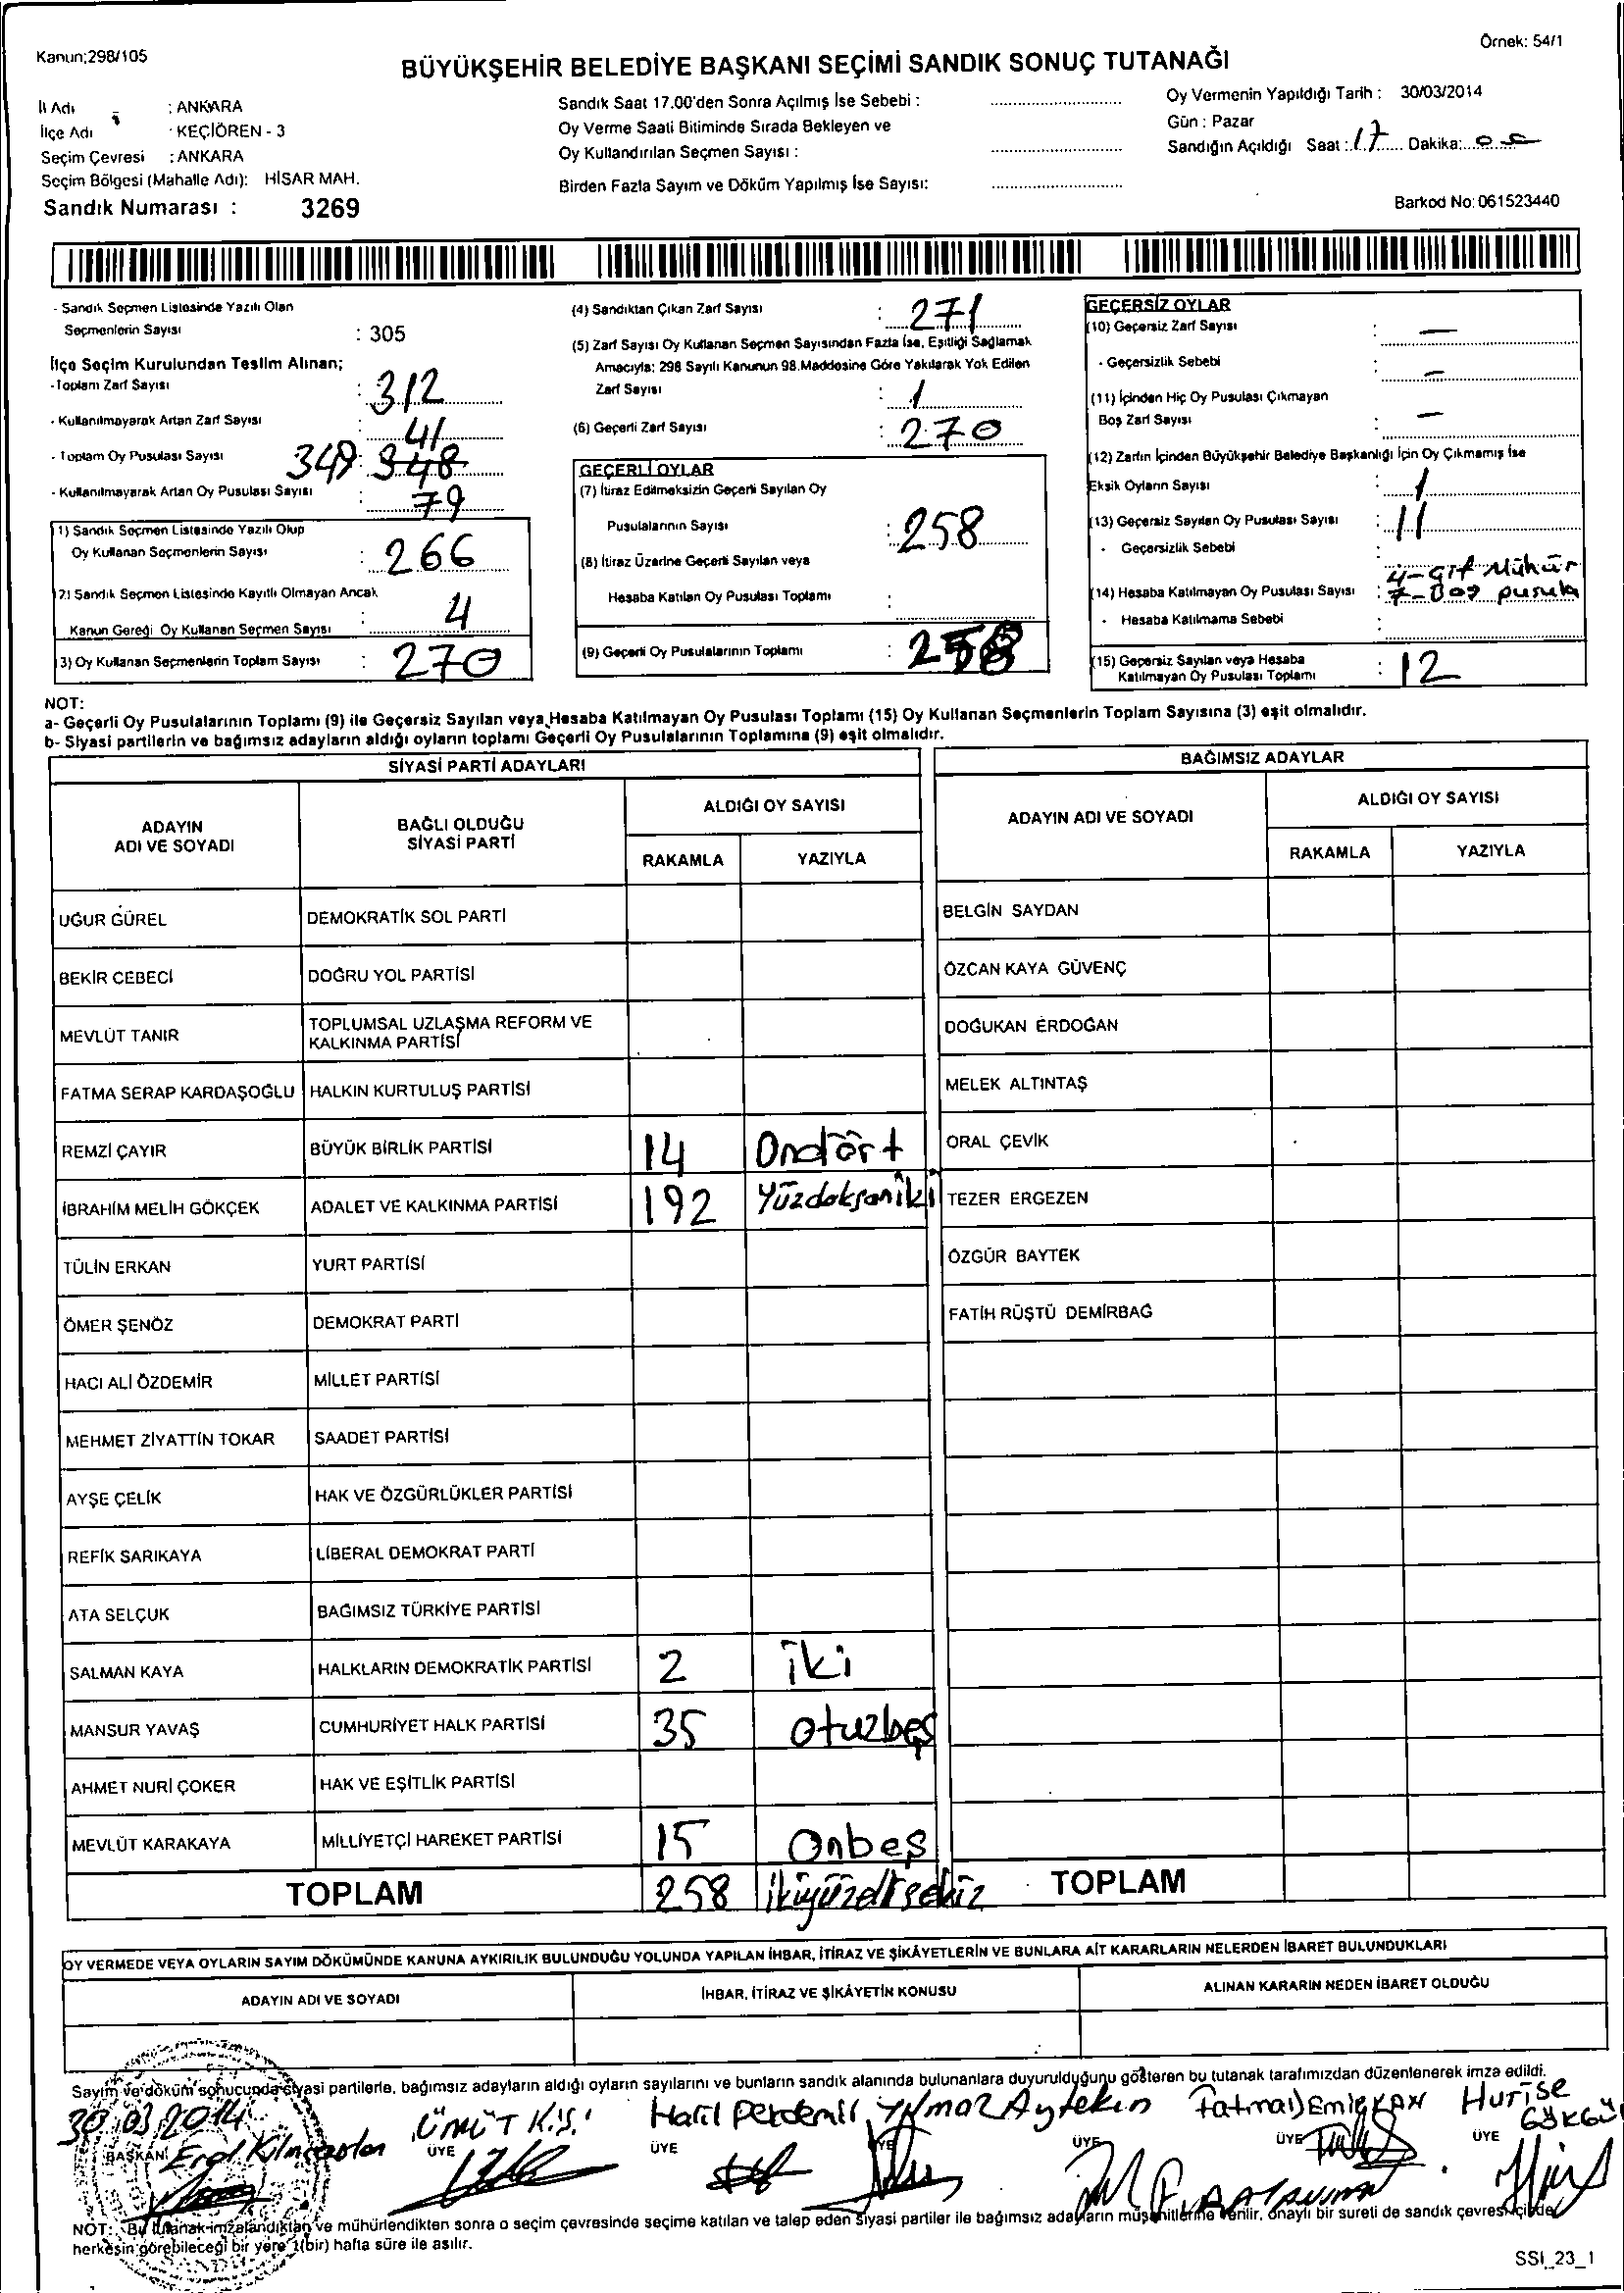 Kanun;298/105
Örnek: 54/1
BÜYÜKŞEHİR BELEDİYE BAŞKANI SEÇİMİ SANDIK SONUÇ TUTANAĞI
İl Adı : ANKARA
İlçe Adı : KEÇİÖREN - 3
Seçim Çevresi : ANKARA
Seçim Bölgesi (Mahalle Adı): HİSAR MAH.
Sandık Numarası : 3269
Sandık Saat 17.00'den Sonra Açılmış İse Sebebi :
Oy Verme Saati Bitiminde Sırada Bekleyen ve
Oy Kullandırılan Seçmen Sayısı :
Birden Fazla Sayım ve Döküm Yapılmış İse Sayısı:
Oy Vermenin Yapıldığı Tarih : 30/03/2014
Gün : Pazar
Sandığın Açıldığı Saat : 17 Dakika:
Barkod No: 061523440
- Sandık Seçmen Listesinde Yazılı Olan
Seçmenlerin Sayısı : 305
İlçe Seçim Kurulundan Teslim Alınan;
- Toplam Zarf Sayısı : 312
- Kullanılmayarak Artan Zarf Sayısı : 41
- Toplam Oy Pusulası Sayısı 349 : 348
- Kullanılmayarak Artan Oy Pusulası Sayısı : 79
1) Sandık Seçmen Listesinde Yazılı Olup
Oy Kullanan Seçmenlerin Sayısı : 266
2) Sandık Seçmen Listesinde Kayıtlı Olmayan Ancak
Kanun Gereği Oy Kullanan Seçmen Sayısı : 4
3) Oy Kullanan Seçmenlerin Toplam Sayısı : 270
(4) Sandıktan Çıkan Zarf Sayısı : 271
(5) Zarf Sayısı Oy Kullanan Seçmen Sayısından Fazla İse, Eşitliği Sağlamak
Amacıyla; 298 Sayılı Kanunun 98.Maddesine Göre Yakılarak Yok Edilen
Zarf Sayısı : 1
(6) Geçerli Zarf Sayısı : 270
GEÇERLİ OYLAR
(7) İtiraz Edilmeksizin Geçerli Sayılan Oy
Pusulalarının Sayısı : 258
(8) İtiraz Üzerine Geçerli Sayılan veya
Hesaba Katılan Oy Pusulası Toplamı :
(9) Geçerli Oy Pusulalarının Toplamı : 258
GEÇERSİZ OYLAR
(10) Geçersiz Zarf Sayısı : —
- Geçersizlik Sebebi : —
(11) İçinden Hiç Oy Pusulası Çıkmayan
Boş Zarf Sayısı : —
(12) Zarfın İçinden Büyükşehir Belediye Başkanlığı İçin Oy Çıkmamış İse
Eksik Oyların Sayısı : 1
(13) Geçersiz Sayılan Oy Pusulası Sayısı : 11
- Geçersizlik Sebebi : 4- Çift Mühür
(14) Hesaba Katılmayan Oy Pusulası Sayısı : 7- Boş pusula
- Hesaba Katılmama Sebebi :
(15) Geçersiz Sayılan veya Hesaba
Katılmayan Oy Pusulası Toplamı : 12
NOT:
a- Geçerli Oy Pusulalarının Toplamı (9) ile Geçersiz Sayılan veya Hesaba Katılmayan Oy Pusulası Toplamı (15) Oy Kullanan Seçmenlerin Toplam Sayısına (3) eşit olmalıdır.
b- Siyasi partilerin ve bağımsız adayların aldığı oyların toplamı Geçerli Oy Pusulalarının Toplamına (9) eşit olmalıdır.
SİYASİ PARTİ ADAYLARI
ADAYIN ADI VE SOYADI
BAĞLI OLDUĞU SİYASİ PARTİ
ALDIĞI OY SAYISI
RAKAMLA YAZIYLA
UĞUR GÜREL DEMOKRATİK SOL PARTİ
BEKİR CEBECİ DOĞRU YOL PARTİSİ
MEVLÜT TANIR TOPLUMSAL UZLAŞMA REFORM VE
KALKINMA PARTİSİ
FATMA SERAP KARDAŞOĞLU HALKIN KURTULUŞ PARTİSİ
REMZİ ÇAYIR BÜYÜK BİRLİK PARTİSİ 14 Ondört
İBRAHİM MELİH GÖKÇEK ADALET VE KALKINMA PARTİSİ 192 Yüzdoksaniki
TÜLİN ERKAN YURT PARTİSİ
ÖMER ŞENÖZ DEMOKRAT PARTİ
HACI ALİ ÖZDEMİR MİLLET PARTİSİ
MEHMET ZİYATTİN TOKAR SAADET PARTİSİ
AYŞE ÇELİK HAK VE ÖZGÜRLÜKLER PARTİSİ
REFİK SARIKAYA LİBERAL DEMOKRAT PARTİ
ATA SELÇUK BAĞIMSIZ TÜRKİYE PARTİSİ
SALMAN KAYA HALKLARIN DEMOKRATİK PARTİSİ 2 iki
MANSUR YAVAŞ CUMHURİYET HALK PARTİSİ 35 otuzbeş
AHMET NURİ ÇOKER HAK VE EŞİTLİK PARTİSİ
MEVLÜT KARAKAYA MİLLİYETÇİ HAREKET PARTİSİ 15 Onbeş
TOPLAM 258
BAĞIMSIZ ADAYLAR
ADAYIN ADI VE SOYADI
ALDIĞI OY SAYISI
RAKAMLA YAZIYLA
BELGİN SAYDAN
ÖZCAN KAYA GÜVENÇ
DOĞUKAN ERDOĞAN
MELEK ALTINTAŞ
ORAL ÇEVİK
TEZER ERGEZEN
ÖZGÜR BAYTEK
FATİH RÜŞTÜ DEMİRBAĞ
TOPLAM
OY VERMEDE VEYA OYLARIN SAYIM DÖKÜMÜNDE KANUNA AYKIRILIK BULUNDUĞU YOLUNDA YAPILAN İHBAR, İTİRAZ VE ŞİKÂYETLERİN VE BUNLARA AİT KARARLARIN NELERDEN İBARET BULUNDUKLARI
ADAYIN ADI VE SOYADI
İHBAR, İTİRAZ VE ŞİKÂYETİN KONUSU
ALINAN KARARIN NEDEN İBARET OLDUĞU
Sayım ve döküm sonucunda siyasi partilerle, bağımsız adayların aldığı oyların sayılarını ve bunların sandık alanında bulunanlara duyurulduğunu gösteren bu tutanak tarafımızdan düzenlenerek imza edildi.
30.03.2014 ÜMÜT Halil Yılmaz Aytekin Hurise
BAŞKAN ÜYE ÜYE ÜYE ÜYE ÜYE ÜYE
NOT: Bu tutanak imzalandıktan ve mühürlendikten sonra o seçim çevresinde seçime katılan ve talep eden siyasi partiler ile bağımsız adayların müşahitlerine verilir, onaylı bir sureti de sandık çevresi içinde
herkesin görebileceği bir yere 1(bir) hafta süre ile asılır.
SSI_23_1